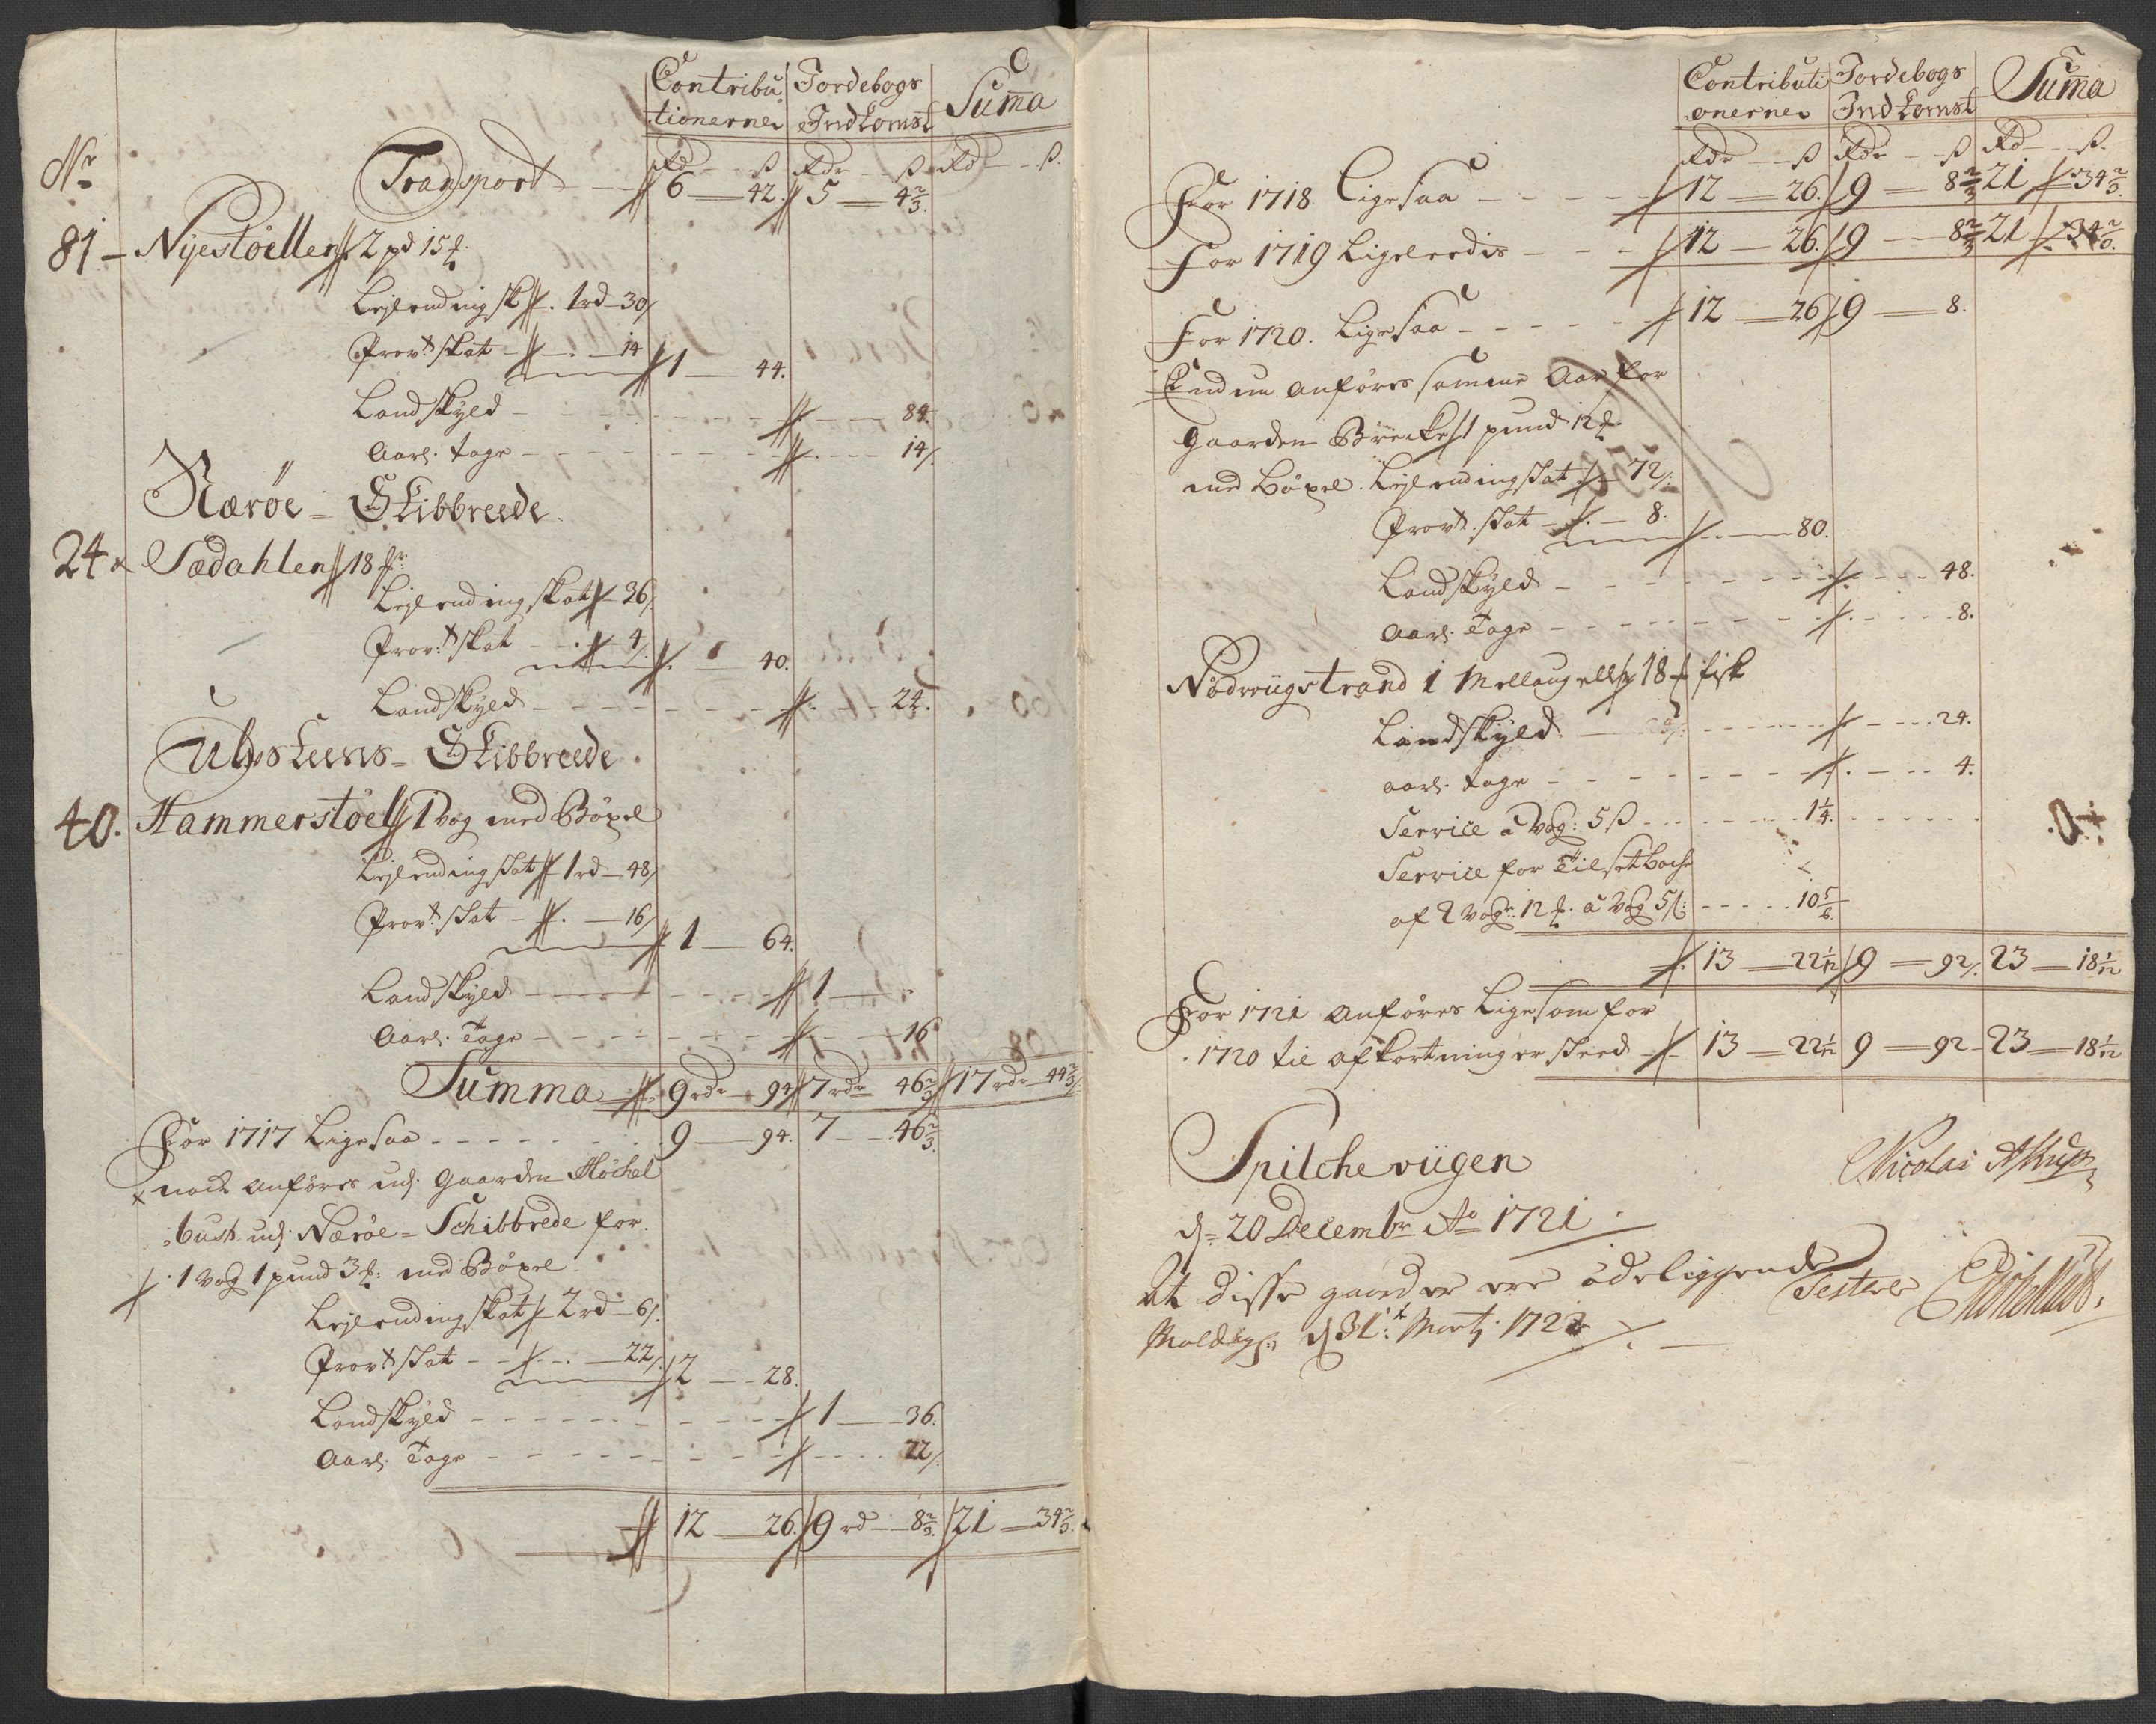 Contribu Jordebogs Suma
tionerne Indkomst
Nr Transport Rd ß Rdr ß Rd ß.
6 — 42. 5 — 4 2/3.
81 – Nyestöellen 2 pd 15
Lejlending sk. 1 rd – 30/
Prov: skat – . – 14
1 – 44.
Landskyld – – 84.
Aarl. tage – – 14/.
Nærøe = Skibbreede.
24 Sædahlen 18
Lejlending skat 36/
Prov: skat – 4/.
– 40.
Landskyld – – 24.
Ulfsteens = Skibbreede.
40. Hammerstöel 1 vog med Böxel
Lejlending skat 1 rd – 48/
Prov: skat – . – 16/
1 – 64.
Landskyld – 1 –
Aarl. Tage – – 16
Summa 9 rdr 94 7 rdr 46 2/3 17 rdr 44 2/3/.
For 1717 Ligesaa – – 9 — 94. 7 — 46 2/3.
nock anföres udj. Gaarden
bust udj Nærøe = Schibbrede for.
1 Vog 1 pund 3 : med Böxel.
Lejlending skat 2 rd – 6/.
Prov: skat – – . – 22/. 2 — 28.
Landskyld – – 1 — 36.
Aarl. Tage – – 22/.
12 — 26. 9 rd — 8 2/3. 21 — 34 2/3.
Contributi Jordebogs Suma
onerne Indkomst
Rdr ß Rdr ß Rd ß.
For 1718 Ligesaa – – 12 — 26. 9 — 8 2/3 21 — 34 2/3.
For 1719 Ligeleedis – – 12 — 26. 9 — 8 2/3 21 — 34 2/3.
For 1720. Ligesaa – – 12 — 26 9 — 8.
Endnu anföres samme Aar for
Gaarden Brecke 1 pund 12
med Böxel. Lejlending skat 72/.
Prov: skat – . – 8. . — 80.
Landskyld – – 48.
Aarl. Tage – – 8.
Nödwiigstrand i 18 fisk
Landskyld – – 24.
aarl. tage – – 4.
Service a Vog: 5 ß – – 1 1/4.
Service for Tilset
af 2 Vog: 12 . a Vog 5 ß: – – 10 5/6.
13 — 22 1/12 9 — 92/. 23 — 18 1/12
For 1721 anföres Ligesom for
1720 til afkortning er skeed – 13 — 22 1/12 9 — 92 – 23 — 18 1/12
Spilcheviigen
d= 20 Decembr Ao 1721. Nicolai Astrup
At disse gaarder ere ödeliggende Testerer
d 31: Martj 1722